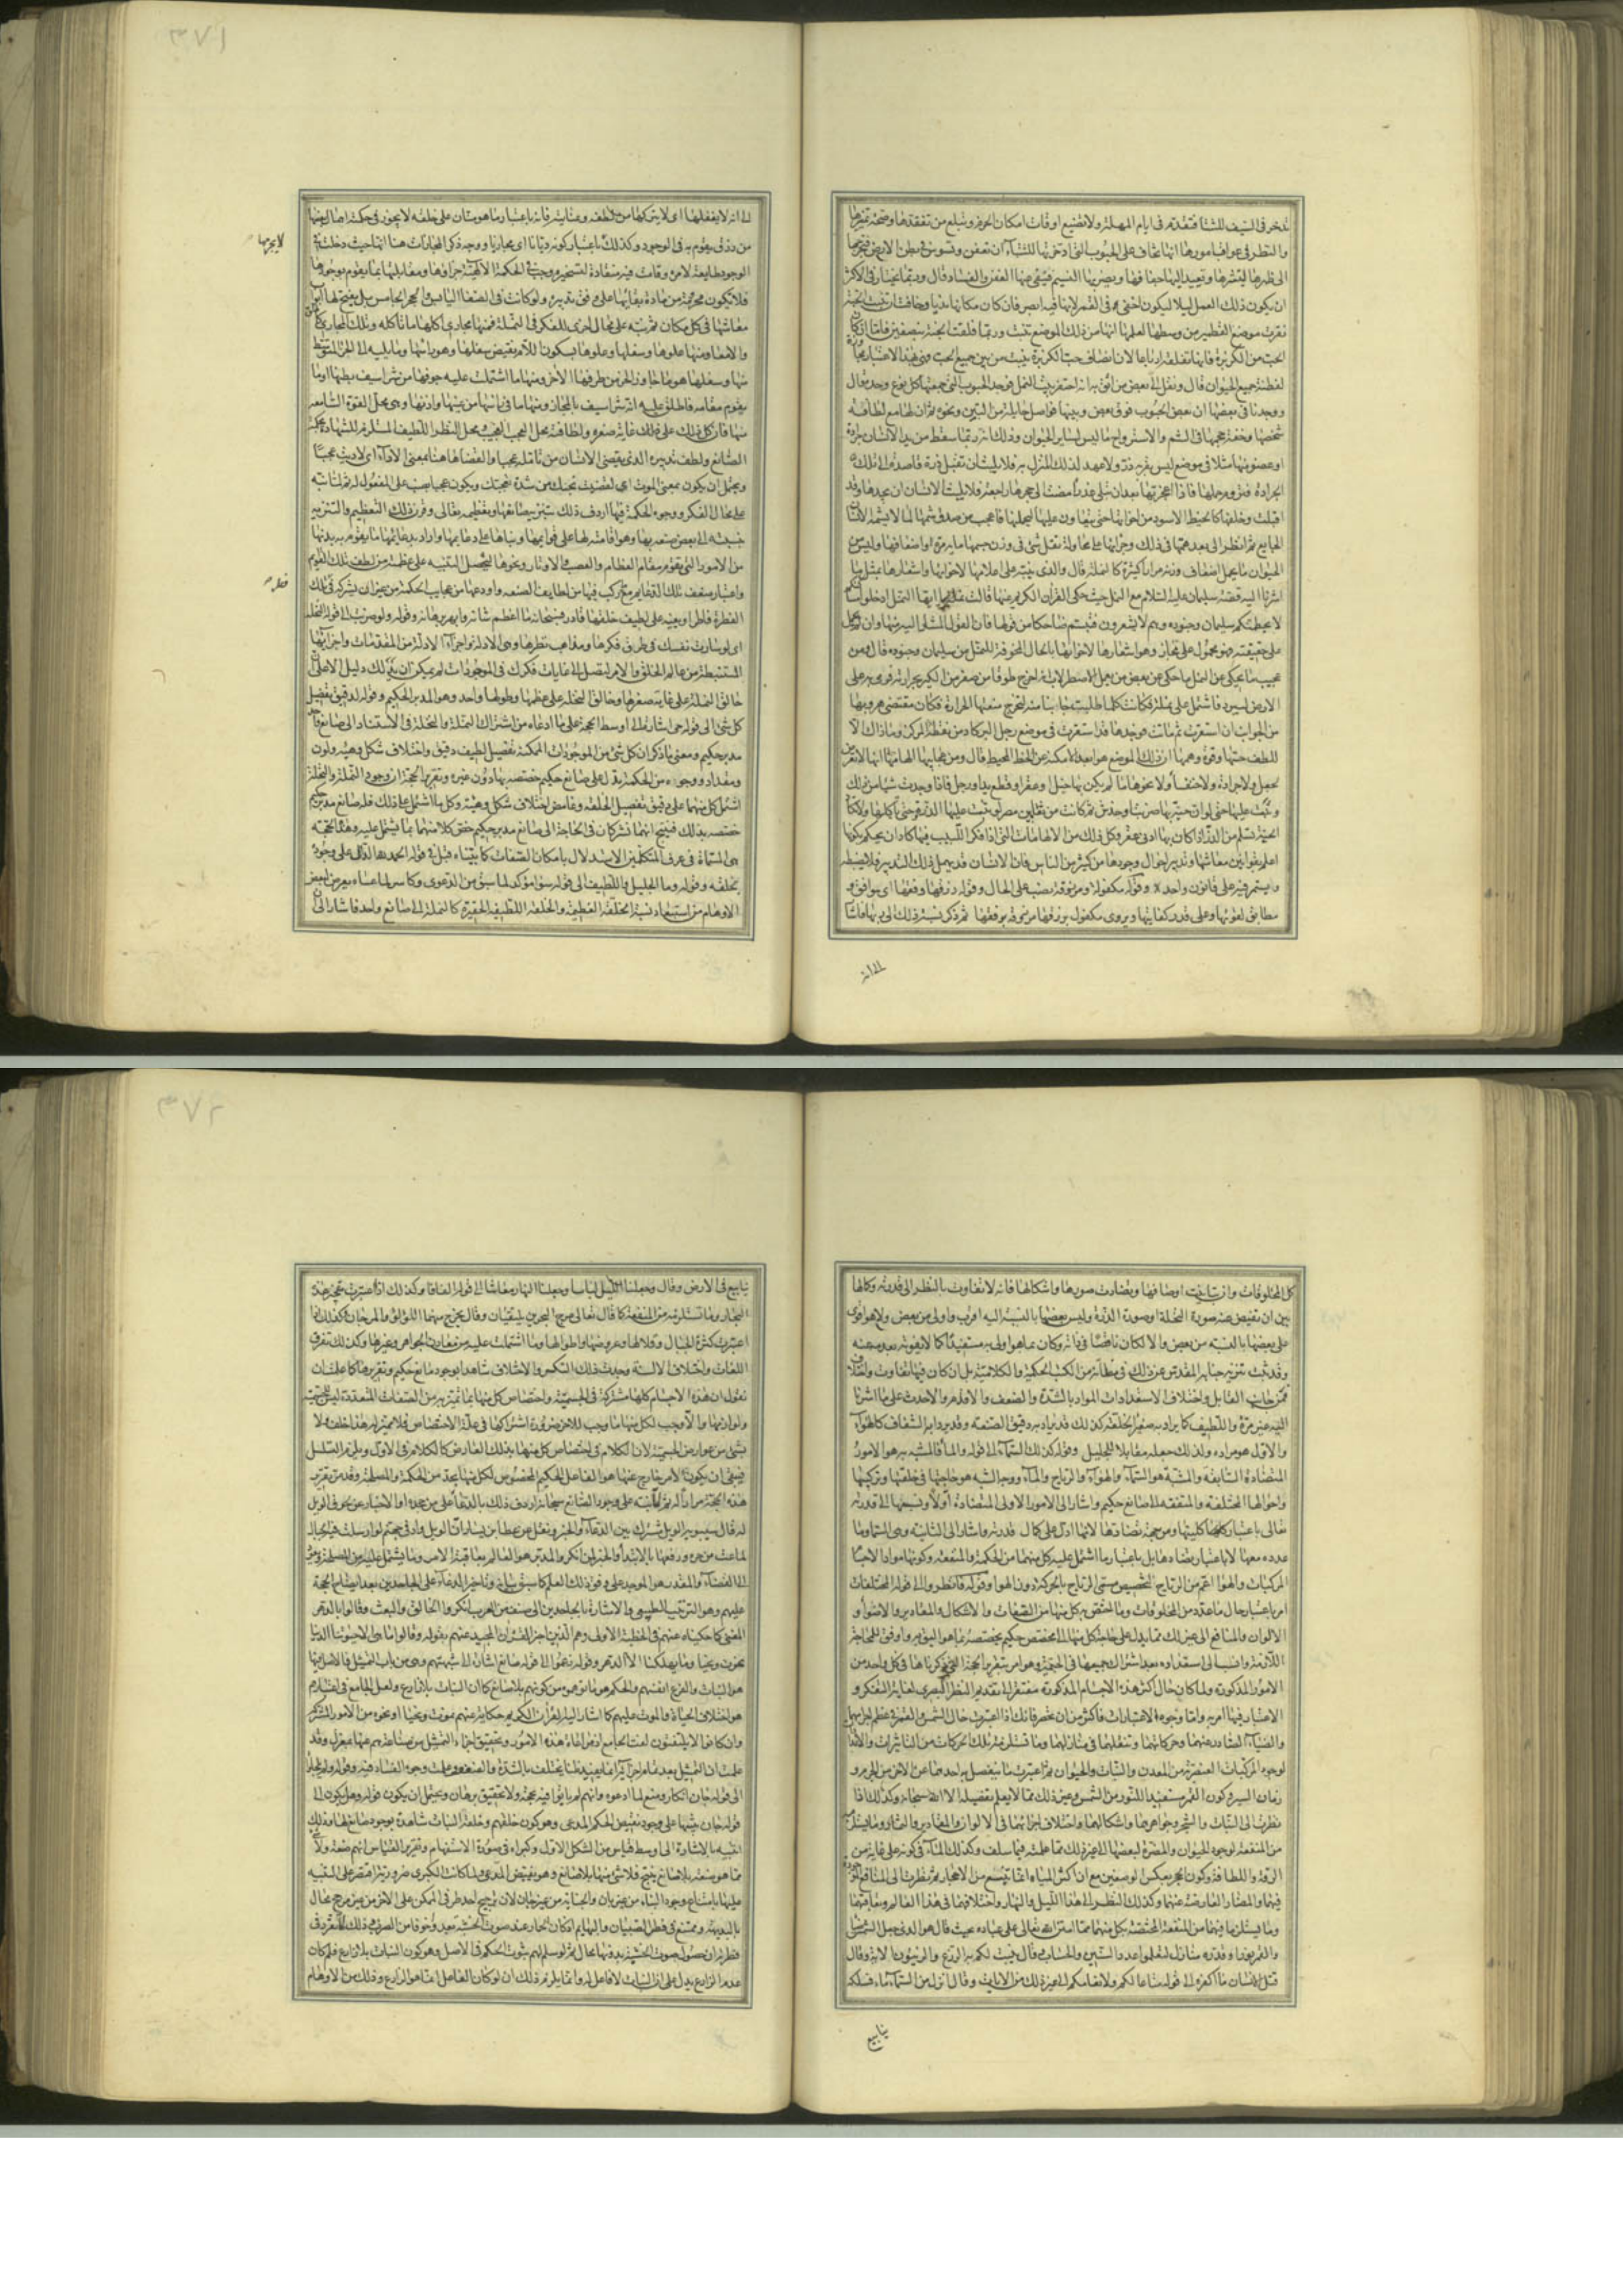 تدخر فى الصيف للشتاء فتقدم فى ايام المهلة ولا تضيع اوقات امكان الحزم ويبلغ من تفقدها وصحة تمييزها
والنظر فى عواقب امورها انها تخاف على الحبوب التى ادخرتها للشتاء ان تعفن وتسوس فى بطن الارض فتخرجها
الى ظهرها لتنشرها وتعيد اليها جفافها ويضربها النسيم فينفى عنها العفن والفساد قال وربما تختار فى الاكثر
ان يكون ذلك العمل ليلا ليكون اخفى وفى القمر لانها فيه ابصر فان كان مكانها نديا وخافت ان تنبت الحبة
نقرت موضع القطمير من وسطها لعلمها انها من ذلك الموضع تنبت وربما فلقت الحبة بنصفين فاما ان كان
الحب من الكزبرة فانها تفلقه ارباعا لان انصاف حب الكزبرة ينبت من بين جميع الحب
لفطنة جميع الحيوان قال ونقل الى بعض من اثق به انه احتفر بيت النمل فوجد الحبوب التى جمعتها كل نوع وحده قال
ووجدنا فى بعضها ان بعض الحبوب فوق بعض وبينها فواصل حايلة من التبن ونحوه ثم ان لها مع لطافة
شخصها وخفة حجمها فى الشم والاسترواح ما ليس لساير الحيوان وذلك انه ربما سقط من يد الانسان جرادة
او عضو منها مثلا فى موضع ليس بقربه ذر ولا عهد لذلك المنزل به فلا يلبث ان تقبل ذرة قاصدة الى تلك
الجرادة فتروم حملها فاذا اعجزتها بعد ان تبلى عذرا مضت الى جحرها راجعة فلا يلبث الانسان ان يجدها وقد
اقبلت وخلفها كالخيط الاسود من اخواتها حتى يتعاون عليها ليحملنها فاعجب من صدق شمها لما لا يشمه الانسان
الجايع ثم انظر الى بعد همتها فى ذلك وجرأتها على محاولة نقل شئ فى وزن جسمها ماية مرة او اضعافها وليس من
الحيوان ما يحمل اضعاف وزنه مرارا كثيرة كالنملة قال والذى ينبه على اعلامها لاخواتها واشعارها بمثل ما
اشرنا اليه قصة سليمان عليه السلام مع النمل حيث حكى القرآن الكريم عنها قالت نملة يا ايها النمل ادخلوا مساكنكم
لا يحطمنكم سليمان وجنوده وهم لا يشعرون فتبسم ضاحكا من قولها فان القول المشار اليه منها وان لم يحمل
على حقيقته فهو محمول على مجازه وهو اشعارها لاخواتها بالحال المخوفة للنمل من سليمان وجنوده قال ومن
عجيب ما يحكى عن النمل ما حكى عن بعض من يعمل الاصطرلاب انه اخرج طوقا من صفر من الكير بحرارته فرمى به على
الارض ليبرد فاشتمل على نملة فكانت كلما طلبت جانبا منه لتخرج منعتها الحرارة فكان مقتضى هروبها
من الجوانب ان استقرت ثم ماتت فوجدها قد استقرت فى موضع رجل البركار من نقطة المركز وما ذاك الا
للطف حسها وقوة وهمها ان ذلك الموضع هو ابعد الامكنة عن الخط المحيط قال ومن عجايبها الهامها انها لا تعرض
لجعل ولا جرادة ولا خنفساء ولا نحوها ما لم يكن بها خبل او عقر او قطع يد او رجل فاذا وجدت شيئا من ذلك
وثبت عليها حتى لو ان حية بها ضربة او خدش ثم كانت من ثعابين مصر لوثبت عليها الذر حتى تأكلها ولا تكاد
الحية تسلم من الذر اذا كان بها ادنى عقر وكل ذلك من الالهامات التى اذا فكر اللبيب فيها كاد ان يحكم بكونها
اعلم بقوانين معاشها وتدبير احوال وجودها من كثير من الناس فان الانسان قد يهمل ذلك التدبير فلا يضبطه
ولا يستمر فيه على قانون واحد وقوله مكفولة ومرزوقة نصب على الحال وقوله رزقها وفقها اى موافق و
مطابق لقوتها وعلى قدر كفايتها ويروى مكفول برزقها مرزوقة بوفقها ثم ذكر نسبة ذلك الى ربها فاشار
الى انه
الى انه لا يغفلها اى لا يتركها من لطفه وعنايته فانه باعتبار ما هو منان على خلقه لا يجوز فى حكمته اهمال بعضها
لا يحرمها
من رزق يقوم به فى الوجود وكذلك باعتبار كونه ديانا اى مجازيا ووجه ذكر المجازات هنا انها حيث دخلت فى
الوجود طايعة لامره وقامت فيه منقادة لتسخيره وجب فى الحكمة الالهية جزاؤها ومقابلتها بما يقوم بوجودها
فلا تكون محرومة من مادة بقائها على وفق تدبيره ولو كانت فى الصفا اليابس والحجر الجامس بل يفتح لها ابواب
معاشها فى كل مكان ثم نبه على محال اخرى للفكر فى النملة فمنها مجارى اكلها ما تأكله وتلك المجارى كالحلق
والامعاء ومنها علوها وسفلها وعلوها بسكون اللام نقيض سفلها وهو راسها وما يليه الى الجزء المتوسط
منها وسفلها هو ما جاوز الجزء من طرفها الآخر ومنها ما اشتملت عليه جوفها من شراسيف بطنها او ما
يقوم مقامه فاطلق عليه انه شراسيف بالمجاز ومنها ما فى راسها من عينها واذنها وهى محل القوة السامعة
منها فان كل ذلك على غاية صغره ولطافته محل العجب العجيب ومحل النظر اللطيف المستلزم للشهادة بحكمة
الصانع ولطف تدبيره الذى يقضى الانسان من تامله عجبا والقضاء هاهنا بمعنى الاداء اى لاديت عجبا
ويحتمل ان يكون بمعنى الموت اى لقضيت نحبك من شدة تعجبك ويكون عجبا نصب على المفعول له ثم لما نبه
على محال الفكر ووجوه الحكمة فيها اردف ذلك بتنزيه صانعها وتعظيمه تعالى وقرن ذلك التعظيم والتنزيه
بنسبته الى بعض صنعه بها وهو اقامته لها على قوايمها وبناها على دعايمها واراد بدعايمها ما يقوم به بدنها
من الامور التى تقوم مقام العظام والعصب والاوتار ونحوها ليحصل التنبيه على عظمته من لطف تلك القوايم
واعتبار ضعف تلك الدعايم مع تركيب فيها من لطايف الصنعه واودعها من عجايب الحكمة من غير ان يشركه فى تلك
فطره
الفطرة فاطر او يعينه على لطيف خلقها قادر فسبحانه ما اعظم شانه وابهر برهانه وقوله ولو ضربت الى قوله النخلة
اى لو سارت نفسك فى طرق فكرها ومذاهب نظرها وهى الادلة واجزاء الادلة من المقدمات واجزائها
المستنبطة من عالم الخلق والامر لتصل الى غايات فكرك فى الموجودات لم يمكن ان يدلك دليل الا على ان
خالق النملة على غاية صغرها وخالق النخلة على عظمها وطولها واحد وهو المدبر الحكيم وقوله لدقيق تفصيل
كل شئ الى قوله حى اشارة الى اوسط الحجة على ما ادعاه من اشتراك النملة والنخلة فى الاستناد الى صانع واحد
مدبر حكيم ومعنى ما ذكر ان كل شئ من الموجودات الممكنة تفصيل لطيف دقيق واختلاف شكل وهيئة ولون
ومقدار ووجوه من الحكمة تدل على صانع حكيم خصصه بها دون غيره وتقرير الحجة ان وجود النملة والنخلة
اشتمل كل منهما على دقيق تفصيل الخلقه وغامض اختلاف شكل وهيئة وكل ما اشتمل على ذلك فله صانع مدبر حكيم
خصصه بذلك فينتج انهما تشتركان فى الحاجة الى صانع مدبر حكيم خص كلا منهما بما يشتمل عليه وهذه الحجة
هى المسماة فى عرف المتكلمين الاستدلال بامكان الصفات كما بيناه قبل فى قوله الحمد لله الدال على وجوده
بخلقه وقوله وما الجليل واللطيف الى قوله سواء مؤكد لما سبق من الدعوى وكاسر لما عساه يعرض لبعض
الاوهام من استبعاد نسبة الخلقة العظيمة والخلقة اللطيفة الحقيرة كالنملة الى صانع واحد فاشار الى ان
كل المخلوقات وان تباينت اوصافها وتضادت صورها واشكالها فانه لا تفاوت بالنظر الى قدرته وكمالها
بين ان تفيض عنه صورة النخلة او صورة الذرة وليس بعضها بالنسبة اليه اقرب واولى من بعض ولا هو اقوى
على بعضها بالنسبة من بعض والا لكان ناقصا فى ذاته وكان بما هو اولى به مستفيدا كمالا يفوته بعدمه عنه
وقد ثبت تنزيه جنابه المقدس عن ذلك فى مظانه من الكتب الحكمية والكلامية بل ان كان فيها تفاوت واختلاف
فمن جانب القابل واختلاف الاستعدادات المواد بالشدة والضعف والاقدم والاحدث على ما اشرنا
اليه غير مرة واللطيف كما يراد به صغر الخلقة كذلك قد يراد به دقيق الصنعة وقد يراد به الشفاف كالهواء
والاول هو مراده ولذلك جعله مقابلا للجليل وقوله كذلك السماء الى قوله والماء فالمشبه به هو الامور
المتضادة السابقة والمشبه هو السماء والهواء والرياح والماء ووجه الشبه هو حاجتها فى خلقتها وتركيبها
واحوالها المختلفة والمتفقة الى صانع حكيم واشار الى الامور الاولى المتضادة اولا ونسبتها الى قدرته
تعالى باعتبار كليتها ومن جهة تضادها لانها ادل على كمال قدرته واشار الى الثانية وهى السماء وما
عدده معها لا باعتبار تضادها بل باعتبار ما اشتمل عليه كل منهما من الحكمة والمنفعة وكونها موادا لاجسام
المركبات والهواء اعم من الرياح لتخصيص مسمى الرياح بالحركة دون الهواء وقوله فانظر الى قوله المختلفات
امر باعتبار حال ما عدد من المخلوقات وما اختص به كل منها من الصفات والاشكال والمقادير والاضواء و
الالوان والمنافع الى غير ذلك مما يدل على حاجة كل منها الى مخصص حكيم يخصصه بما هو اليق به واوفق للحاجة
اللازمة وانسب الى استعداده بعد اشتراك جميعها فى الجسمية وهو امر بتقرير الحجة التى ذكرناها فى كل واحد من
الامور المذكورة ولما كان حال اكثر هذه الاجسام المذكورة مفتقرا الى تقديم النظر البصرى لغاية التفكر و
الاعتبار فيها امر به واما وجوه الاعتبارات فاكثر من ان تحصر فانك اذا اعتبرت حال الشمس والقمر فى عظم اجرامهما
والضياء الصادر عنهما وحركاتهما وتنقلهما فى منازلهما وما تستلزمه تلك الحركات من التاثيرات والاعداد
لوجود المركبات العنصرية من المعدن والنبات والحيوان ثم اعتبرت ما ينفصل به احدهما عن الآخر من الجرم و
زمان السير وكون القمر مستفيدا للنور من الشمس وغير ذلك مما لا يعلم تفصيله الا الله سبحانه وكذلك اذا
نظرت الى النبات والشجر وجواهرها واشكالها واختلاف اجزائها فى الالوان والمقادير والثمار وما يستلزمه
من المنفعة لوجود الحيوان والمضرة لبعضها الى غير ذلك مما علمته فيما سلف وكذلك الماء فى كونه على غاية من
الرقة واللطافة وكون الحجر بعكس الوصفين مع ان اكثر المياه انما تنبع من الاحجار ثم نظرت الى المنافع الموجودة
فيهما والمضار العارضة عنهما وكذلك النظر الى هذا الليل والنهار واختلافهما فى هذا العالم وتعاقبهما
وما يستلزمانه فيهما من المنفعة المختصة بكل منهما مما امتن الله تعالى على عباده حيث قال هو الذى جعل الشمس ضياء
والقمر نورا وقدره منازل لتعلموا عدد السنين والحساب وقال ينبت لكم به الزرع والزيتون الآية وقال
قتل الانسان ما اكفره الى قوله متاعا لكم ولانعامكم الى غير ذلك من الآيات وقال انزل من السماء ماء فسلكه
ينابيع
ينابيع فى الارض وقال وجعلنا الليل لباسا وجعلنا النهار معاشا الى قوله الفافا وكذلك اذا اعتبرت تفجر هذه
البحار وما تستلزمه من المنفعة كما قال تعالى مرج البحرين يلتقيان وقال يخرج منهما اللؤلؤ والمرجان وكذلك اذا
اعتبرت كثرة الجبال وقلالها وعروضها واطوالها وما اشتملت عليه من معادن الجواهر وغيرها وكذلك تفرق
اللغات واختلاف الالسنة وجدت ذلك التكسر والاختلاف شاهدا بوجود صانع حكيم وتقريرها كما علمت ان
نقول ان هذه الاجسام كلها مشتركة فى الجسمية واختصاص كل منها بما تميز به من الصفات المتعددة ليس للجسمية
ولوازمها والا وجب لكل منها ما وجب للآخر ضرورة اشتراكها فى علة الاختصاص فلا مميز له هذا خلف ولا
بشئ من عوارض الجسمية لان الكلام فى اختصاص كل منها بذلك العارض كالكلام فى الاول ويلزم التسلسل
فيبقى ان يكون الامر خارج عنها هو الفاعل الحكيم المخصوص لكل منها بحد من الحكمة والمصلحة وقد مر تقرير
هذه الحجة مرارا ثم لما نبه على وجود الصانع سبحانه اردف ذلك بالدعاء على من جحده او الاخبار عن لحوق الويل
له قال سيبويه الويل مشترك بين الدعاء والخبر ونقل عن عطا بن يسار ان الويل واد فى جهنم لو ارسلت فيه الجبال
لماعت من حره ورفعها بالابتداء والخبر لمن انكر والمدبر هو العالم بعاقبة الامر وما يشتمل عليه من المصلحة
الى القضاء والمقدر هو الموجد على وفق ذلك العلم كما سبق بيانه وتاخير الدعاء على الجاحدين بعد ايضاح الحجة
عليهم وهو الترتيب الطبيعى والاشارة بالجاحدين الى صنف من العرب انكروا الخالق والبعث وقالوا بالدهر
المفنى كما حكيناه عنهم فى الخطبة الاولى وهم الذين اخبر القرآن المجيد عنهم بقوله وقالوا ما هى الا حيوتنا الدنيا
نموت ونحيا وما يهلكنا الا الدهر وقوله زعموا الى قوله صانع اشارة الى شبهتهم وهى من باب التمثيل فالاصل فيها
هو النبات والفرع انفسهم والحكم هو ما توهموه من كونهم بلا صانع كما ان النبات بلا زارع ولعل الجامع فى اعتبارهم
هو اختلاف الحياة والموت عليهم كما اشار اليه القرآن الكريم حكاية عنهم نموت ونحيا او نحوه من الامور المشتركة
وان كانوا لا يلتفتون لفت الجامع اذ مراعاة هذه الامور وتحقيق اجزاء التمثيل من صناعة هم عنها بمعزل وقد
علمت ان التمثيل بعد تمام اجزائه انما يفيد ظنا يختلف بالشدة والضعف وعلمت وجوه الفساد فيه وقوله ولم يلجأوا
الى قوله جان انكار ومنع لما ادعوه وانهم لم ياتوا فيه بحجة ولا تحقيق برهان ويحتمل ان يكون قوله وهل يكون الى
قوله جان تنبيها على وجود نقيض الحكم المدعى وهو كون خلقهم وخلقة النبات شاهدة بوجود صانع لها وذلك
التنبيه بالاشارة الى اوسط قياس من الشكل الاول وكبراه فى صورة الاستفهام وتقرير القياس انهم صنعة ولا شئ
مما هو صنعة بلا صانع ينتج فلا شئ منها بلا صانع وهو نقيض المدعى ولما كانت الكبرى ضرورية اقتصر على التنبيه
عليها بامتناع وجود البناء من غير بان والجناية من غير جان لان ترجيح احد طرفى الممكن على الآخر من غير مرجح محال
بالبديهة وممتنع فى فطن الصبيان والبهايم اذ كان الحمار عند صوت الخشبة يعدو خوفا من الضرب وذلك لما تقرر فى
فطرته ان حصول صوت الخشبة بدونها محال ثم لو سلم لهم ثبوت الحكم فى الاصل وهو كون النبات بلا زارع فلم كان
عدم الزارع يدل على ان النبات لا فاعل له وانما يلزم ذلك ان لو كان الفاعل انما هو الزارع وذلك من الاوهام